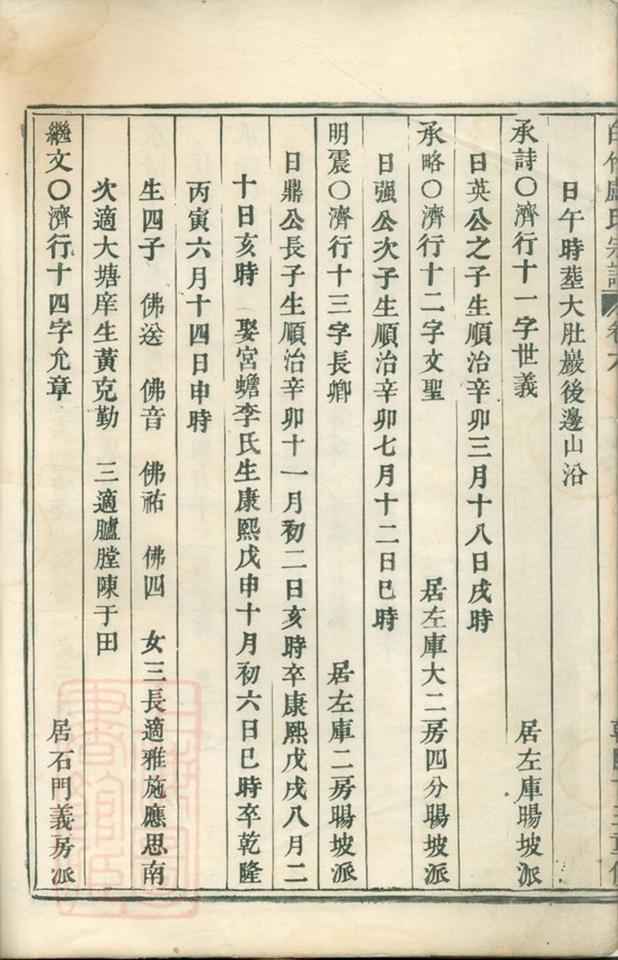 日午時塟大肚巖後邊山沿
承詩〇濟行十一字世義　居左庫暘坡派
日英公之子生順治辛卯三月十八日戌時
承略〇濟行十二字文聖　居左庫大二房四分暘坡派
日强公次子生順治辛卯七月十二日巳時
明震〇濟行十三字長卿　居左庫二房暘坡派
日鼎公長子生順治辛卯十一月初二日亥時卒康熙戊戌八月二
十日亥時　娶宮蟾李氏生康熙戊申十月初六日巳時卒乾隆
丙寅六月十四日申時
生四子　佛送　佛音　佛祐　佛四　女三長適雅施應思南
次適大塘庠生黃克勤　三適臚膛陳于田
繼文〇濟行十四字允章　居石門義房派